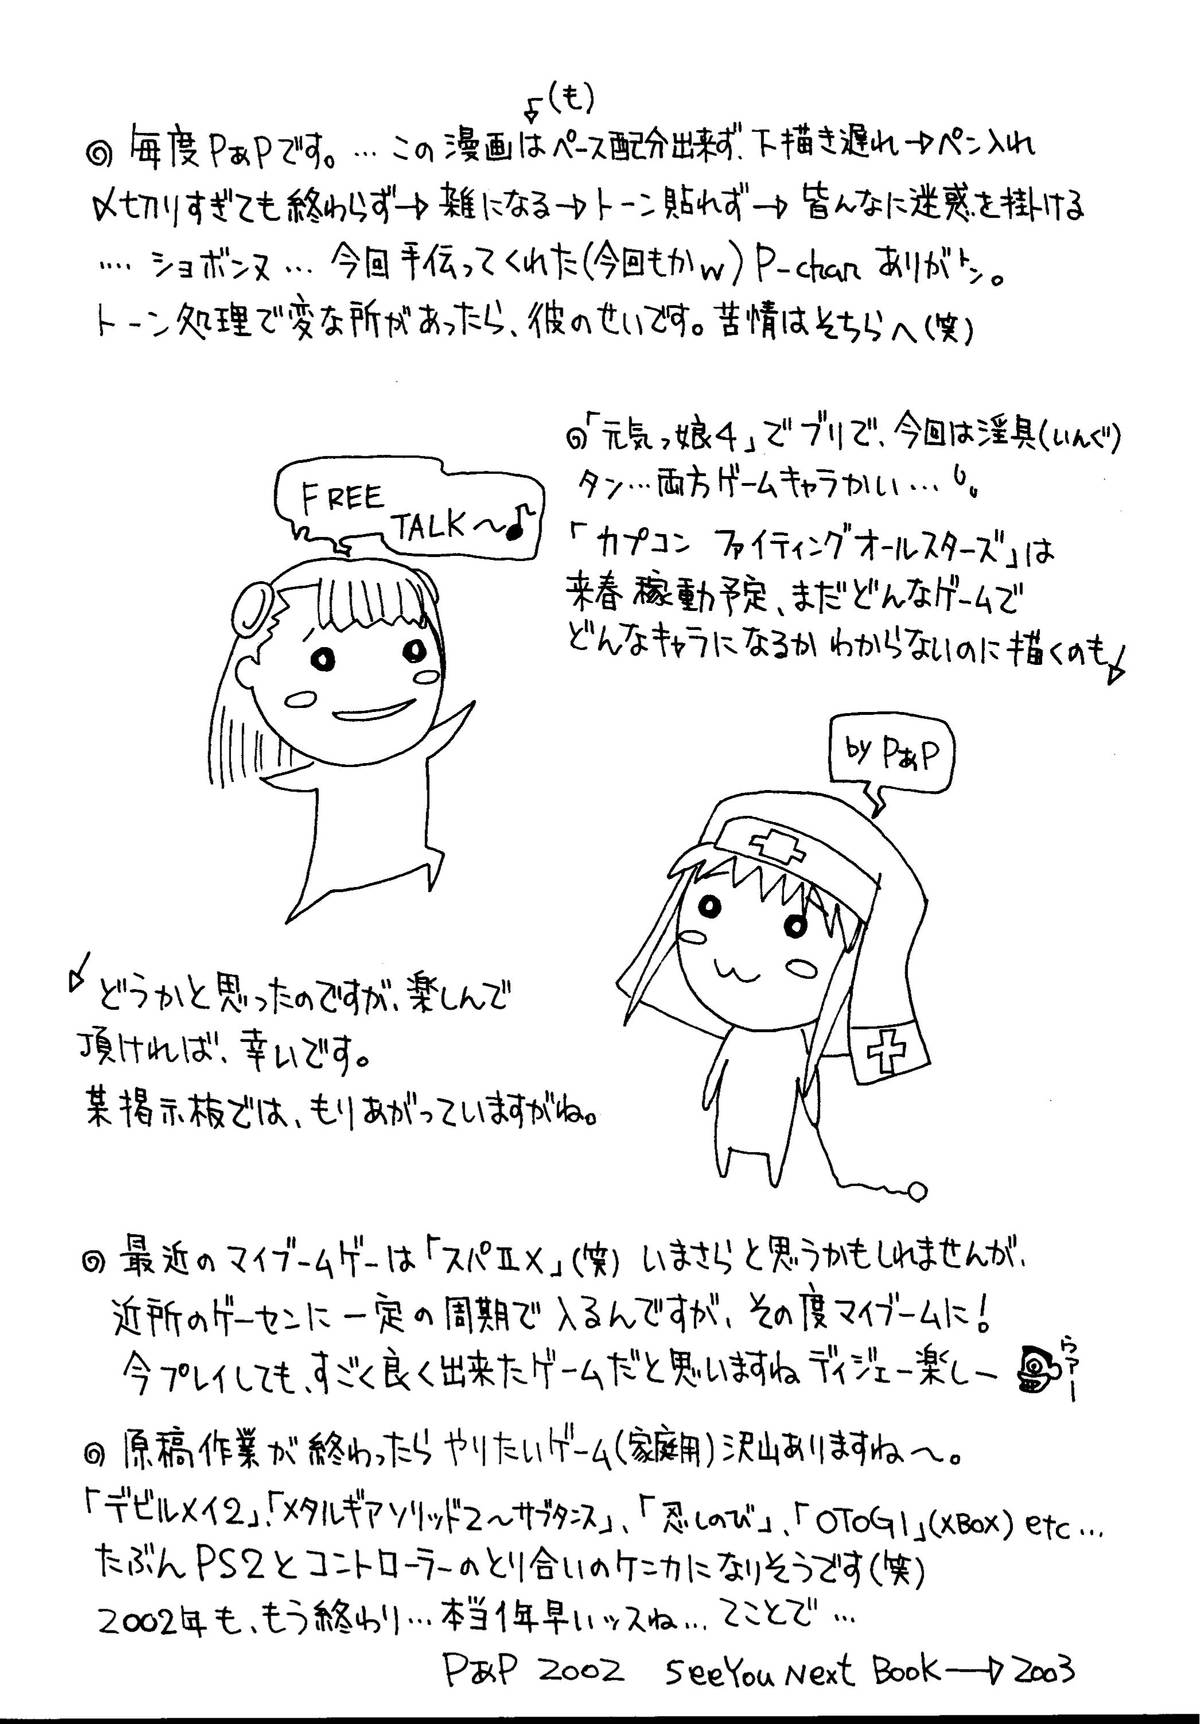 (も)
◎毎度PぁPです。…この漫画はペース配分出来ず、下描き遅れ→ペン入れ
〆切りすぎても終わらず→雑になる→トーン貼れず→皆んなに迷惑を掛ける
‥‥ショボンヌ…今回手伝ってくれた(今回もかw)P-chanありがトン。
トーン処理で変な所があったら、彼のせいです。苦情はそちらへ(笑)
◎「元気っ娘4」でブリで、今回は淫具(いんぐ)
タン…両方ゲームキャラかい…
「カプコン ファイティングオールスターズ」は
来春稼動予定、まだどんなゲームで
どんなキャラになるかわからないのに描くのも
FREE
TALK〜♪
by PぁP
どうかと思ったのですが、楽しんで
頂ければ、幸いです。
某掲示板では、もりあがっていますがね。
◎最近のマイブームゲーは「スパⅡX」(笑)いまさらと思うかもしれませんが、
近所のゲーセンに一定の周期で入るんですが、その度マイブームに!
今プレイしても、すごく良く出来たゲームだと思いますねディジェー楽しー
うアー
◎原稿作業が終わったらやりたいゲーム(家庭用)沢山ありますね〜。
「デビルメイ2」、「メタルギアソリッド2〜サブタンス」、「忍しのび」、「OTOGI」(XBOX)etc…
たぶんPS2とコントローラーのとり合いのケンカになりそうです(笑)
2002年も、もう終わり…本当1年早いッスね…てことで…
PぁP 2002 See You Next BOOK→2003